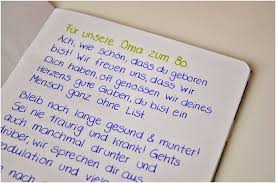 Für unsere Oma zum 80.
Ach, wie schön, dass du geboren
bist! Wir freuen uns, dass wir
Dich haben, oft genossen wir deines
Herzens gute Gaben, du bist ein
Mensch ganz ohne List
Bleib noch lange gesund & munter!
Sei nie traurig und krank! Gehts
auch manchmal drunter und
drüber, wir sprechen dir aus
adulation und vielen